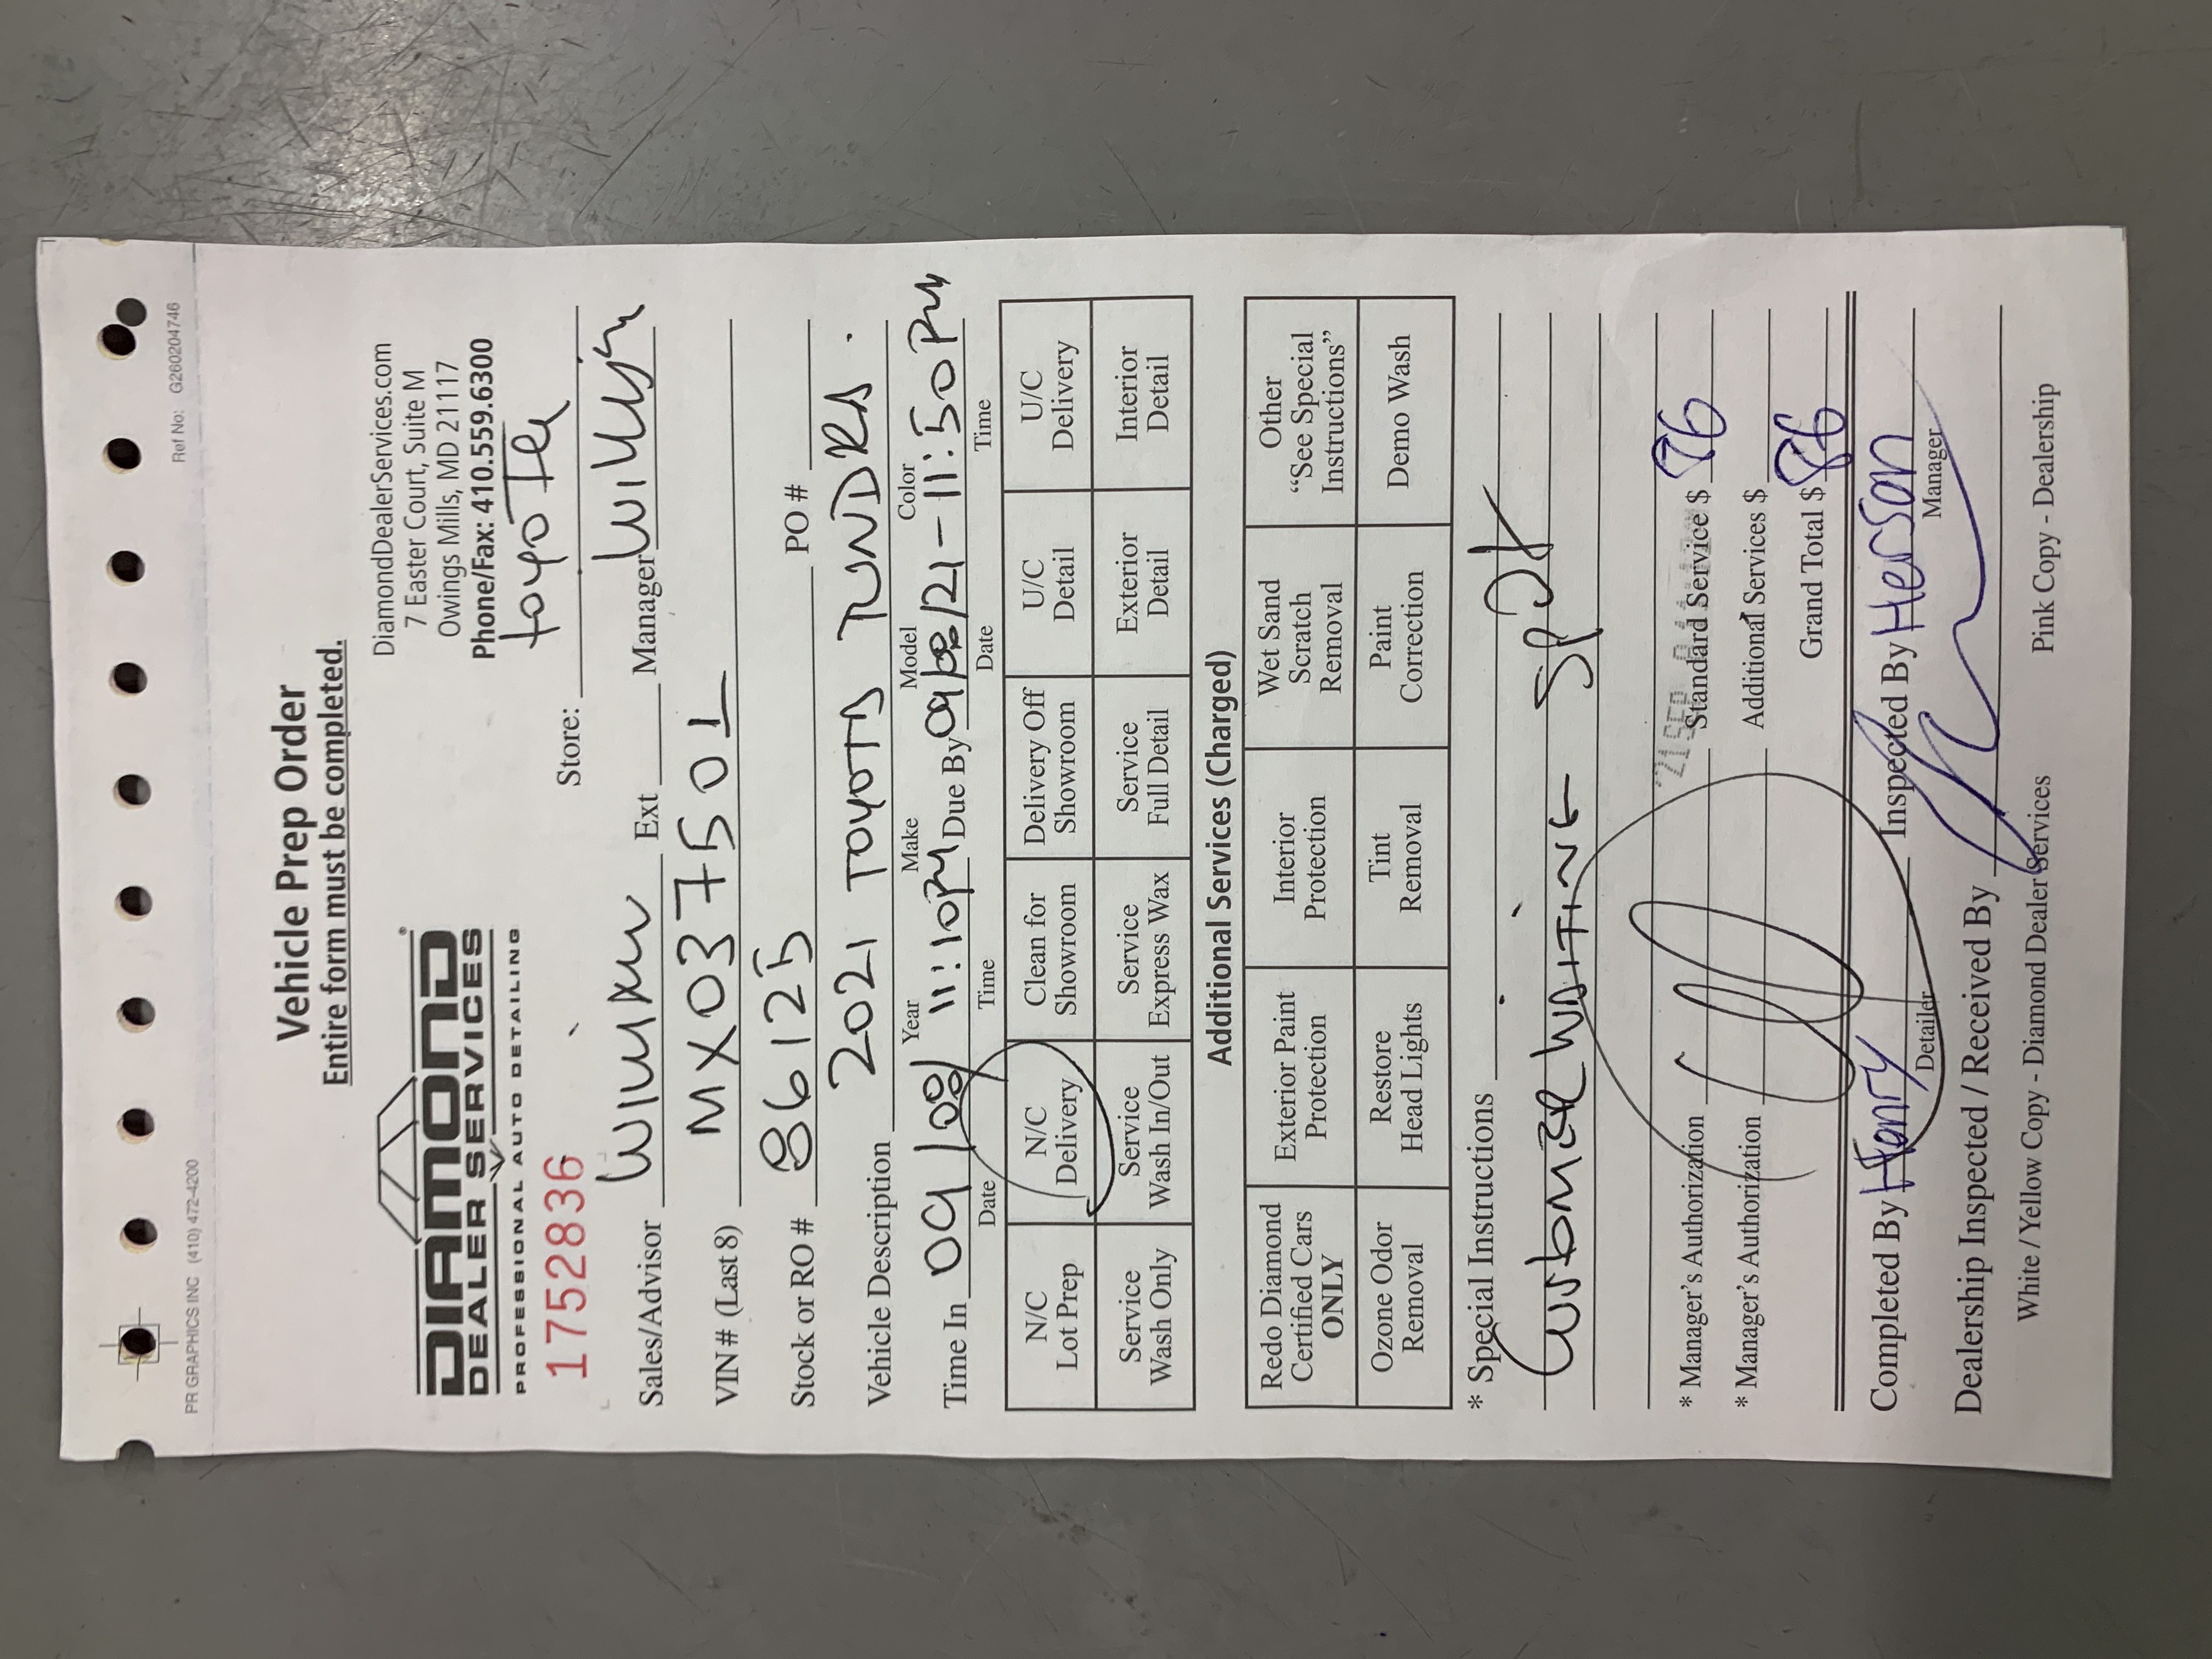 PR GRAPHICS INC (410) 472-4200 Ref No: G260204746
Vehicle Prep Order
Entire form must be completed.
DIAMOND®
DEALER SERVICES
PROFESSIONAL AUTO DETAILING
DiamondDealerServices.com
7 Easter Court, Suite M
Owings Mills, MD 21117
Phone/Fax: 410.559.6300
1752836
Store: Toyota
Sales/Advisor Ext Manager
VIN# (Last 8) MX037501
Stock or RO # 86125 PO #
Vehicle Description 2021 TOYOTA TUNDRA.
Year Make Model Color
Time In 09/08/ 11:10PM Due By 09/08/21-11:50PM
Date Time Date Time
N/C Lot Prep
N/C Delivery
Clean for Showroom
Delivery Off Showroom
U/C Detail
U/C Delivery
Service Wash Only
Service Wash In/Out
Service Express Wax
Service Full Detail
Exterior Detail
Interior Detail
Additional Services (Charged)
Redo Diamond Certified Cars ONLY
Exterior Paint Protection
Interior Protection
Wet Sand Scratch Removal
Other "See Special Instructions"
Ozone Odor Removal
Restore Head Lights
Tint Removal
Paint Correction
Demo Wash
* Special Instructions
Customer WAITING -
'21SEP
* Manager's Authorization Standard Service $ 86
* Manager's Authorization Additional Services $
Grand Total $ 86
Completed By Henry Inspected By Herson
Detailer Manager
Dealership Inspected / Received By
White / Yellow Copy - Diamond Dealer Services Pink Copy - Dealership